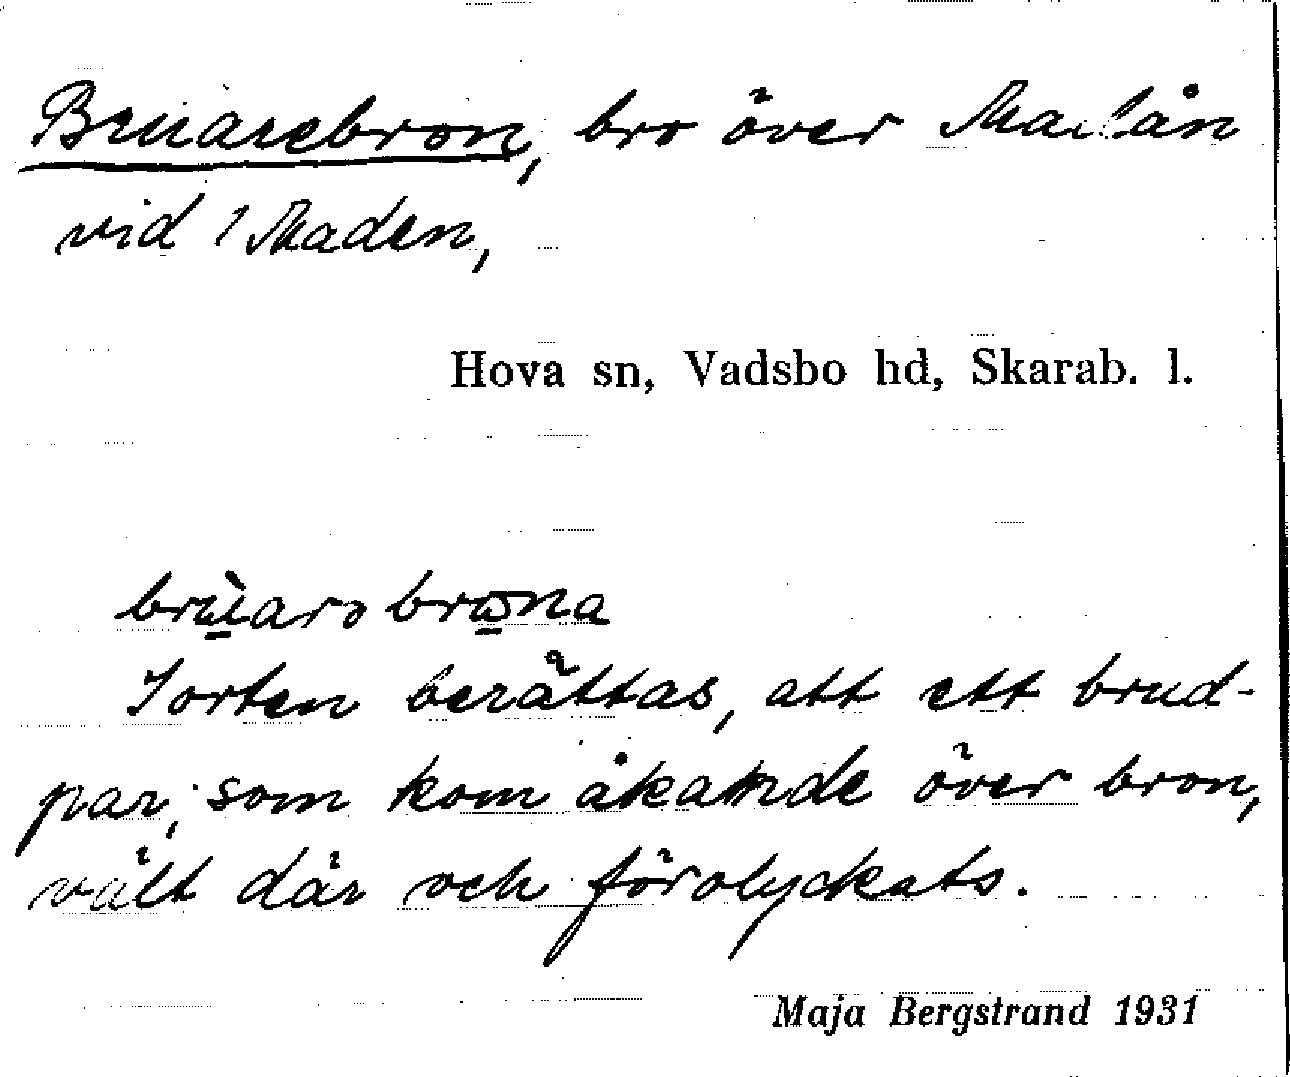 Bruarebron, bro över Madån
vid 1 Maden,
Hova sn, Vadsbo hd, Skarab. l.
brùarə brωna
I orten berättas, att ett brud-
par, som kom åkande över bron,
vält där och förolyckats.
Maja Bergstrand 1931